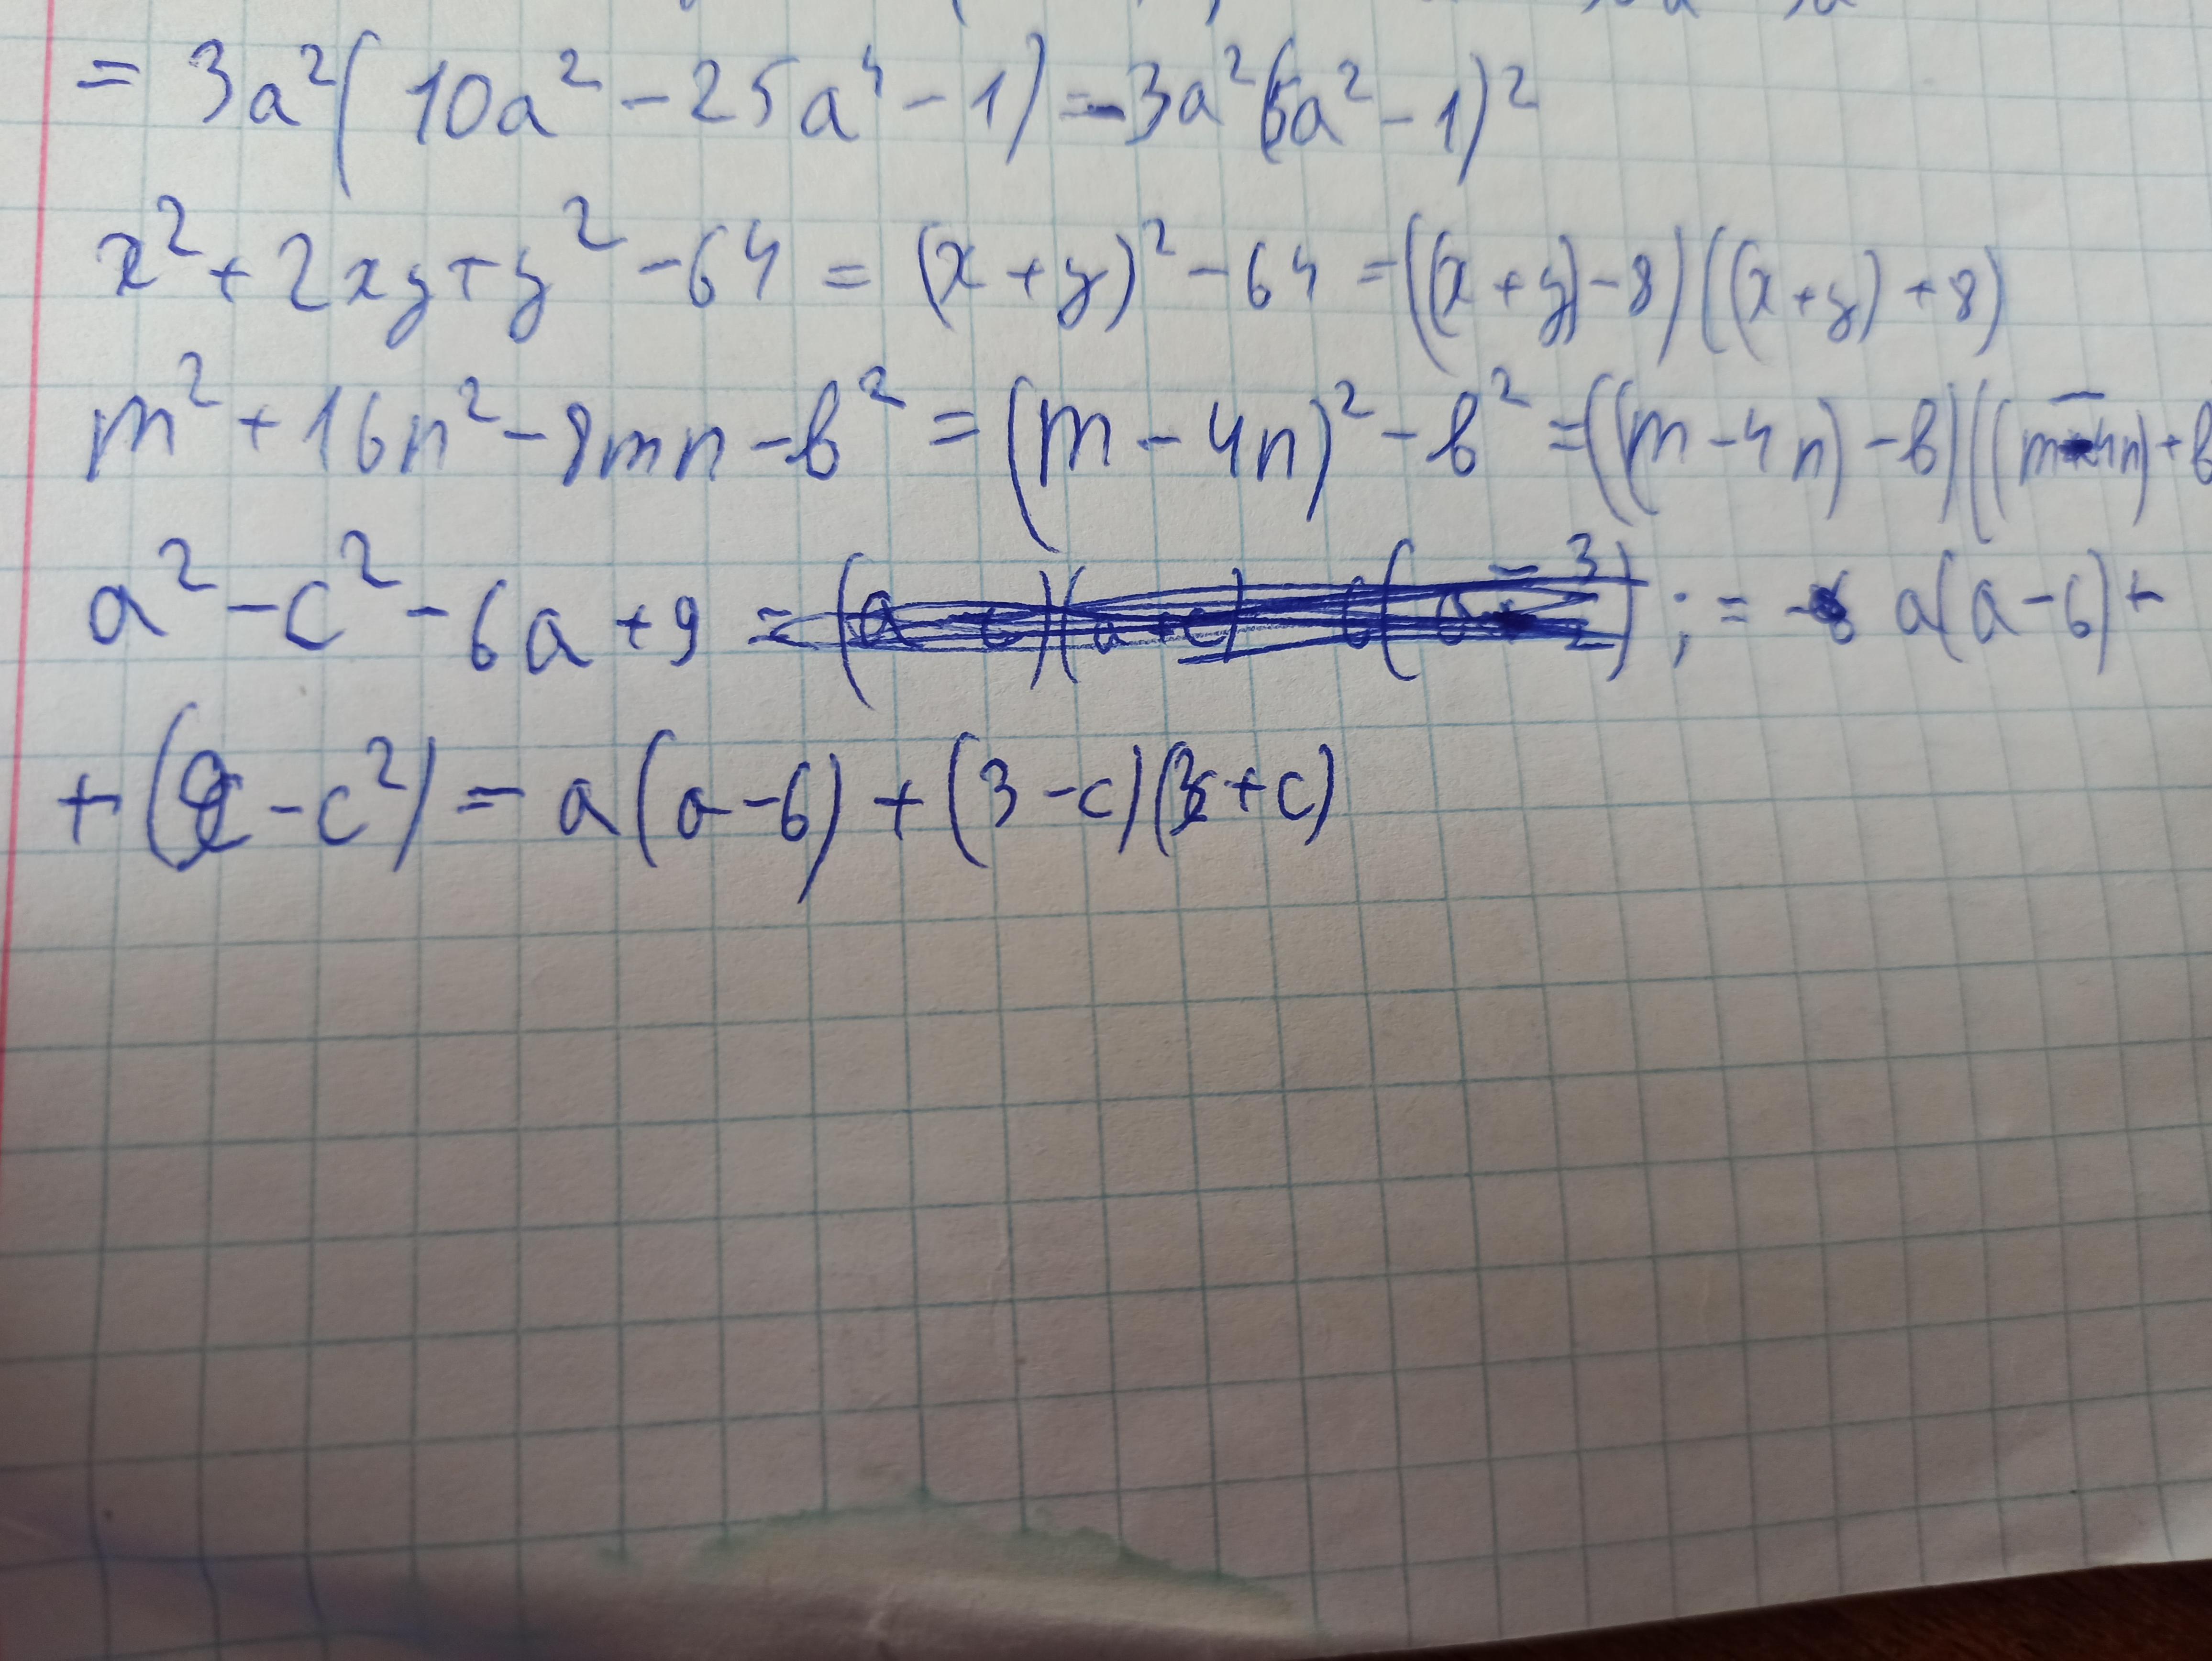 = 3a²(10a² - 25a⁴ - 1) = -3a²(5a² - 1)²
x² + 2xy + y² - 64 = (x + y)² - 64 = ((x + y) - 8)((x + y) + 8)
m² + 16n² - 8mn - b² = (m - 4n)² - b² = ((m - 4n) - b)((m - 4n) + b
a² - c² - 6a + 9 = ; = a(a - 6) +
+ (9 - c²) = a(a - 6) + (3 - c)(3 + c)